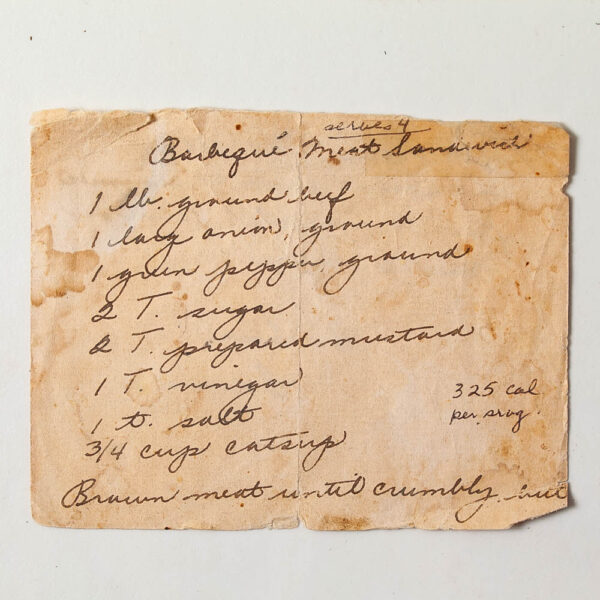 serves 4
Barbequé Meat Sandwich
1 lb. ground beef
1 larg onion, ground
1 green pepper, ground
2 T. sugar
2 T. prepared mustard
1 T. vinegar
1 t. salt
3/4 cup catsup
325 cal
per srvg.
Brown meat until crumbly, but